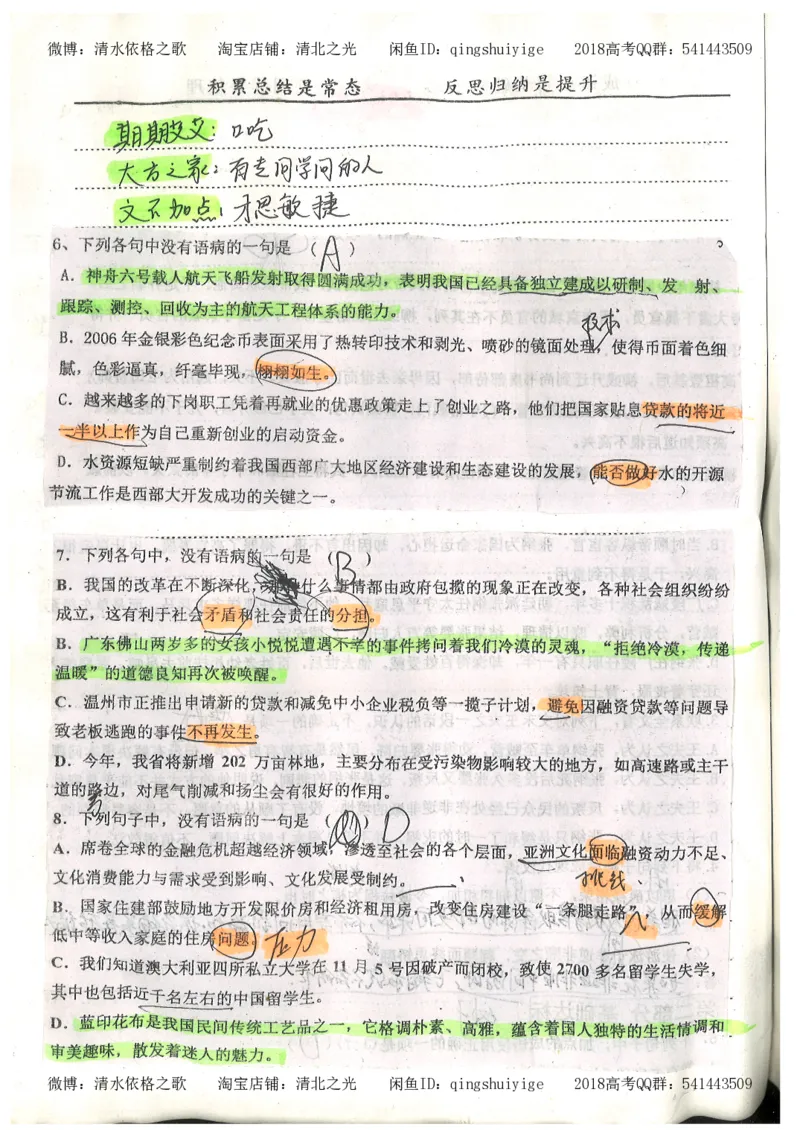 微博：清水依格之歌 淘宝店铺：清北之光 闲鱼ID：qingshuiyige 2018高考QQ群：541443509
积累总结是常态 反思归纳是提升
期期艾艾：口吃
大方之家：有专门学问的人
文不加点：才思敏捷
6、下列各句中没有语病的一句是 （A）
A．神舟六号载人航天飞船发射取得圆满成功，表明我国已经具备独立建成以研制、发 射、
跟踪、测控、回收为主的航天工程体系的能力。
技术
B．2006年金银彩色纪念币表面采用了热转印技术和剥光、喷砂的镜面处理，使得币面着色细
腻，色彩逼真，纤毫毕现，栩栩如生。
C．越来越多的下岗职工凭着再就业的优惠政策走上了创业之路，他们把国家贴息贷款的将近
一半以上作为自己重新创业的启动资金。
D．水资源短缺严重制约着我国西部广大地区经济建设和生态建设的发展，能否做好水的开源
节流工作是西部大开发成功的关键之一。
7．下列各句中，没有语病的一句是 （B）
B．我国的改革在不断深化，什么事情都由政府包揽的现象正在改变，各种社会组织纷纷
成立，这有利于社会矛盾和社会责任的分担。
B．广东佛山两岁多的女孩小悦悦遭遇不幸的事件拷问着我们冷漠的灵魂，“拒绝冷漠，传递
温暖”的道德良知再次被唤醒。
C．温州市正推出申请新的贷款和减免中小企业税负等一揽子计划，避免因融资贷款等问题导
致老板逃跑的事件不再发生。
D．今年，我省将新增 202 万亩林地，主要分布在受污染物影响较大的地方，如高速路或主干
道的路边，对尾气削减和扬尘会有很好的作用。
8．下列句子中，没有语病的一句是 （ ）D
A．席卷全球的金融危机超越经济领域，渗透至社会的各个层面，亚洲文化面临融资动力不足、
文化消费能力与需求受到影响、文化发展受制约。
挑战
B．国家住建部鼓励地方开发限价房和经济租用房，改变住房建设“一条腿走路”，从而缓解
低中等收入家庭的住房问题。压力
C．我们知道澳大利亚四所私立大学在 11 月 5 号因破产而闭校，致使 2700 多名留学生失学，
其中也包括近千名左右的中国留学生。
D．蓝印花布是我国民间传统工艺品之一，它格调朴素、高雅，蕴含着国人独特的生活情调和
审美趣味，散发着迷人的魅力。
微博：清水依格之歌 淘宝店铺：清北之光 闲鱼ID：qingshuiyige 2018高考QQ群：541443509